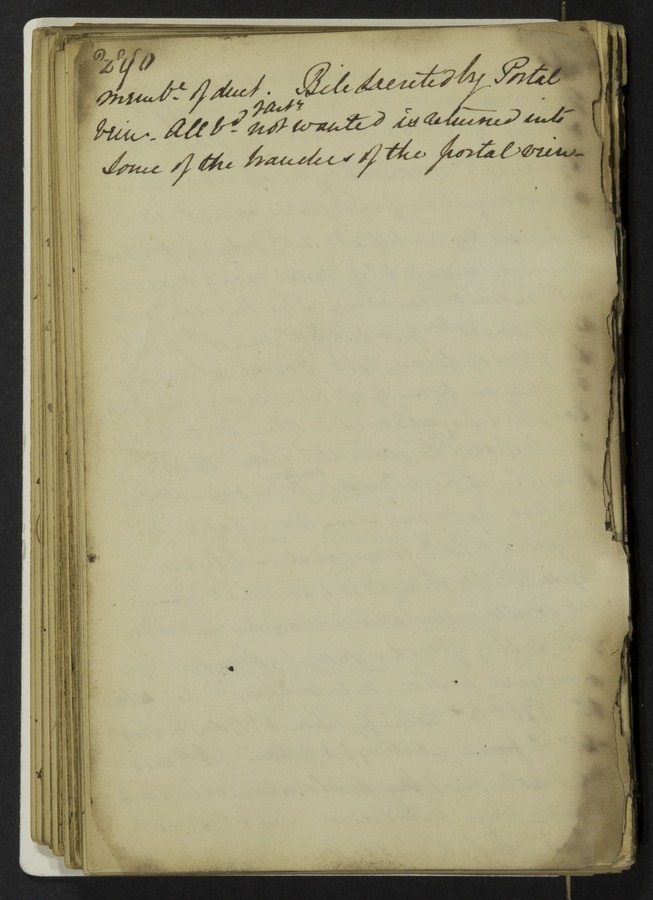 290
memb.e of duct. Bile secreted by Portal
vein. All b.d not wanted is returned into
some of the branches of the portal vein.